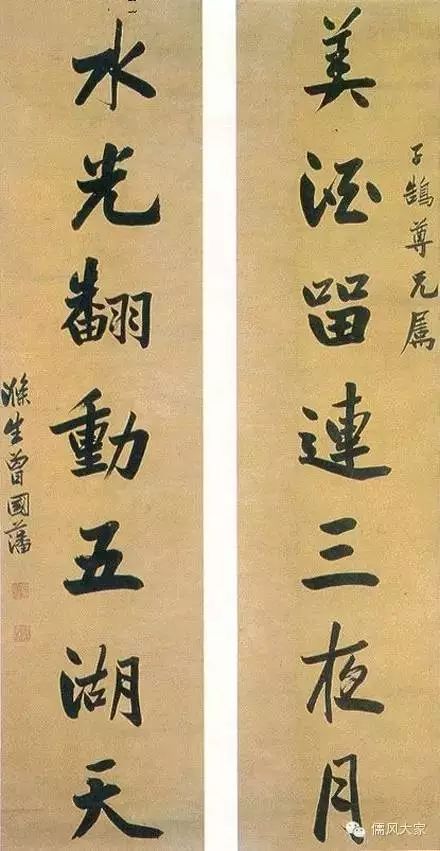 子鵠尊兄屬
美酒留連三夜月
水光翻動五湖天
滌生曾國藩
儒风大家